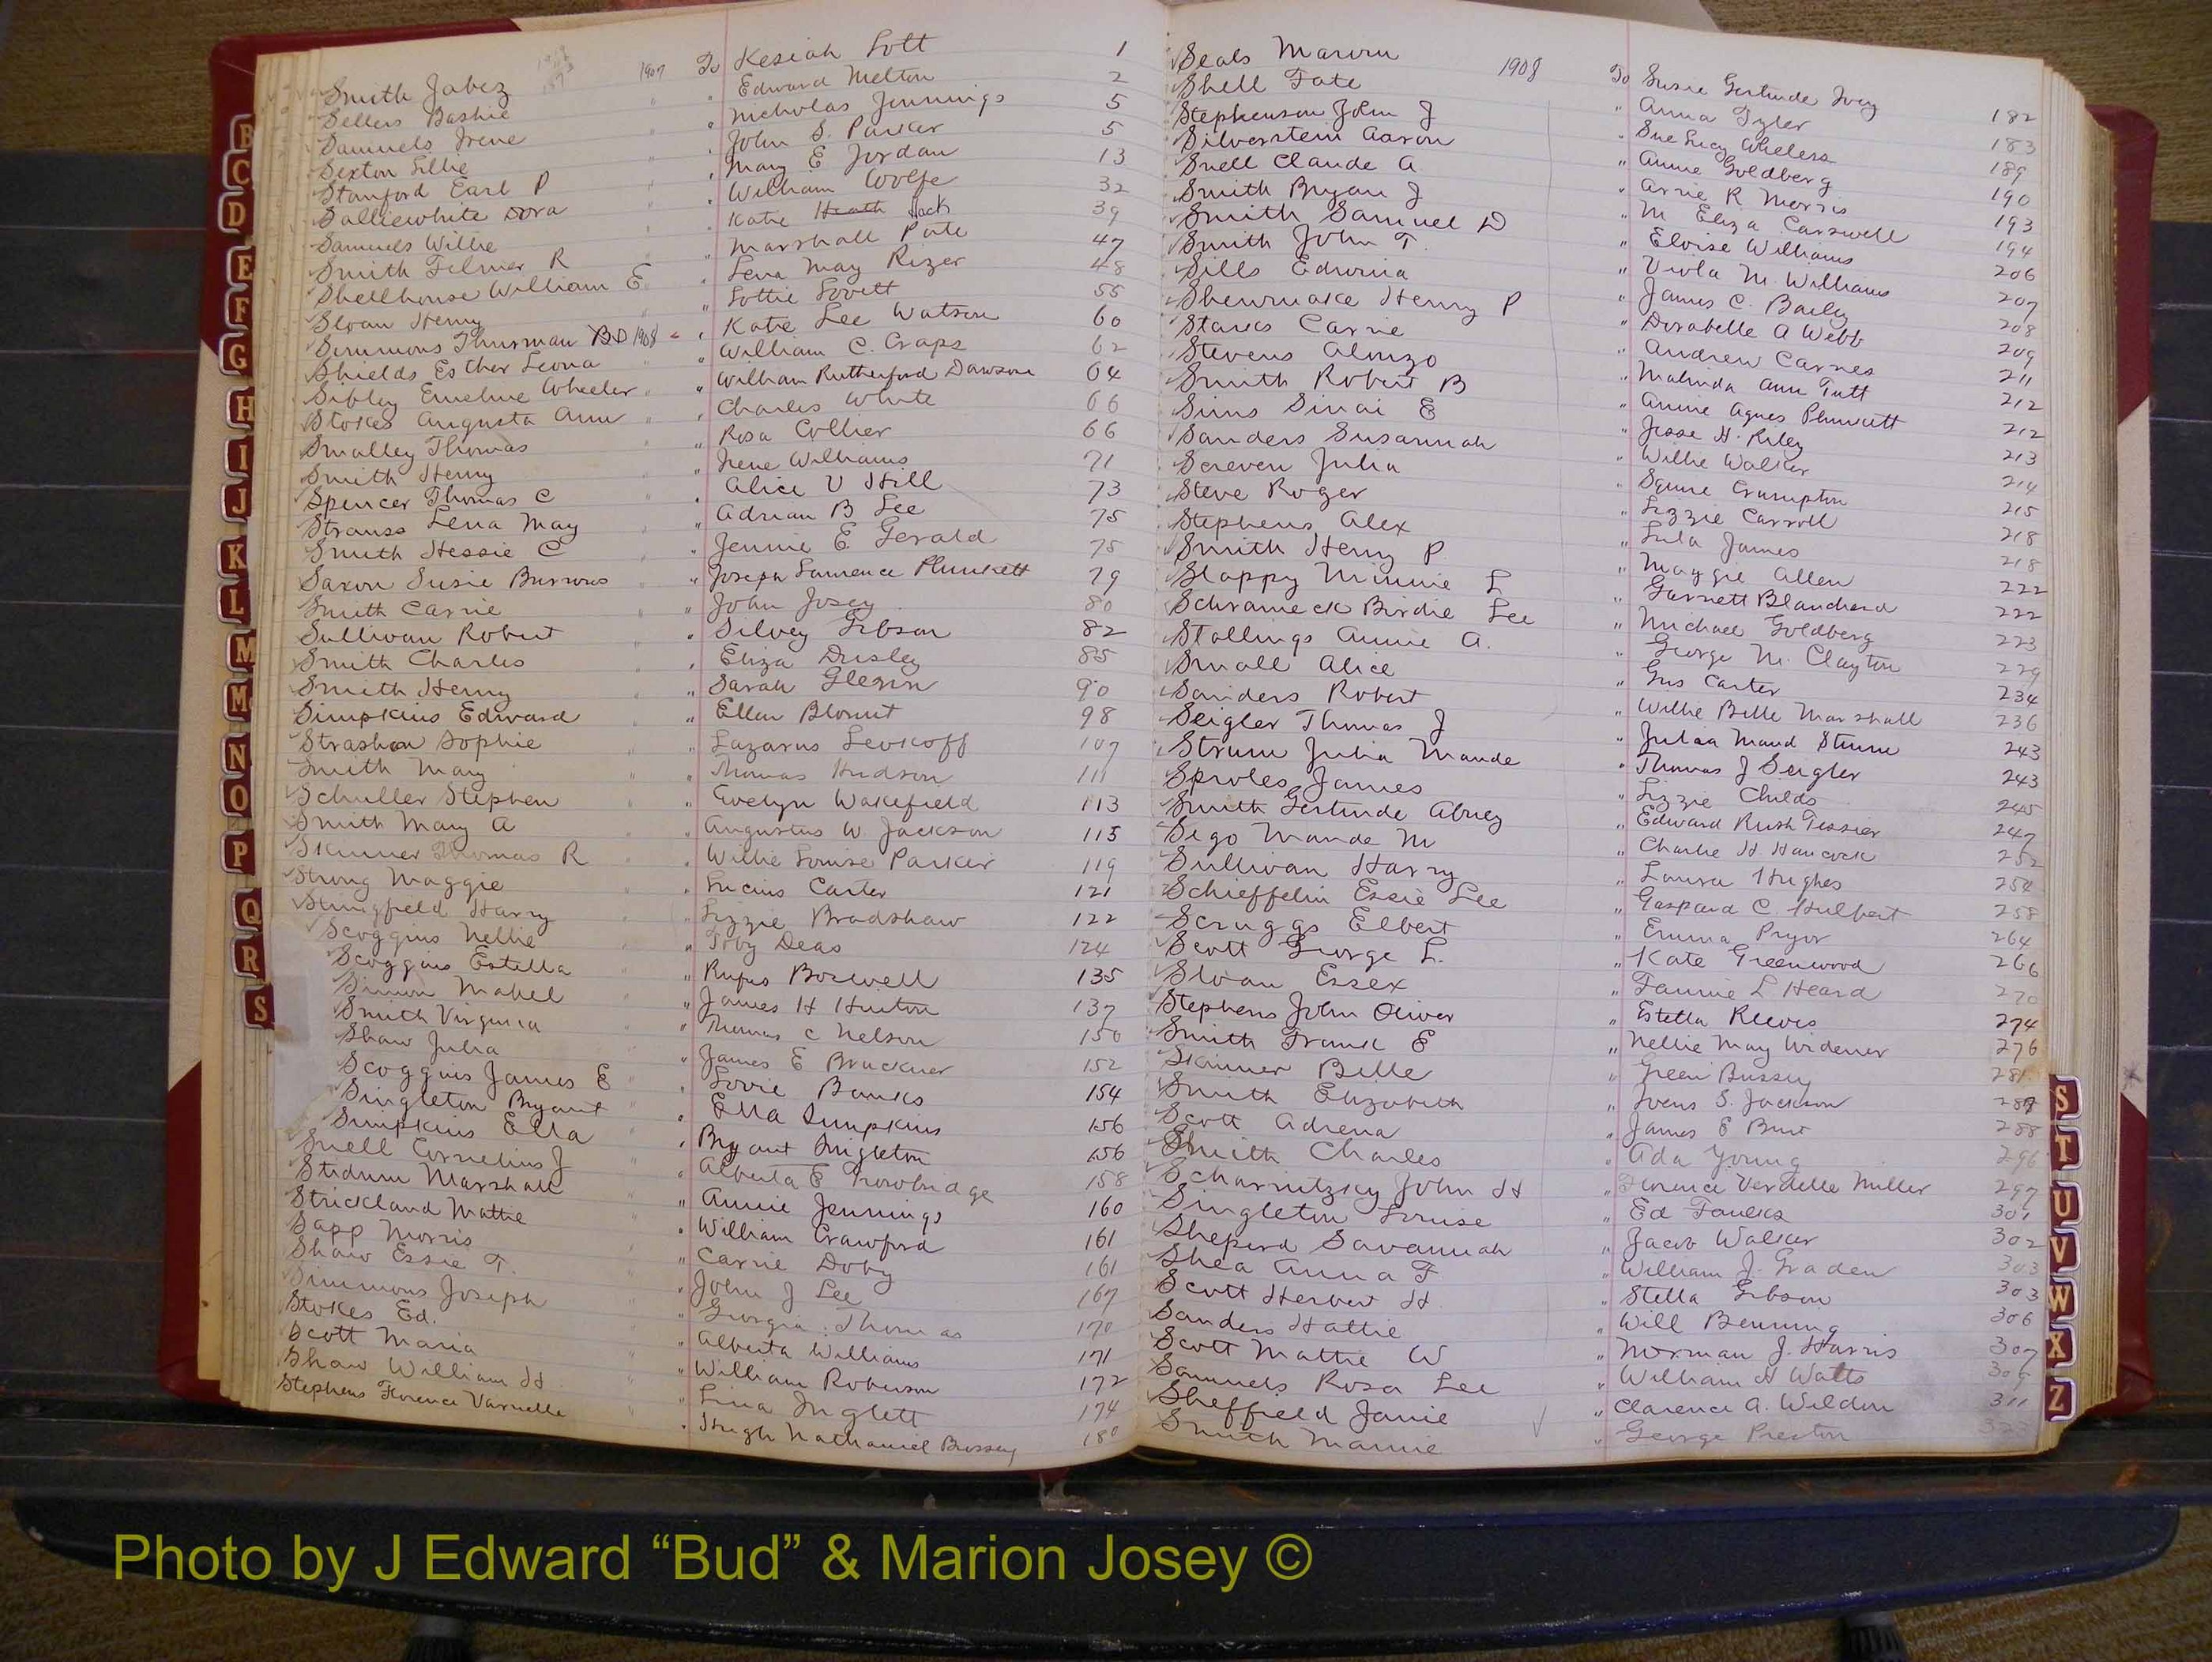 Smith Jabez 1907 To Kesiah Lott 1
Sellers Bashie " " Edward Melton 2
Samuels Irene " " Nicholas Jennings 5
Sexton Lillie " " John S. Parker 5
Stanford Earl P " " Mary E Jordan 13
Salliewhite Dora " " William Wolfe 32
Samuels Willie " " Katie Heath Jack 39
Smith Filmer R " " Marshall Pate 47
Shellhouse William E " " Lena May Rizer 48
Sloan Henry " " Lottie Lovett 55
Simmons Thurman BD 1908 " " Katie Lee Watson 60
Shields Esther Leona " " William C. Craps 62
Sibley Emeline Wheeler " " William Rutherford Dawson 64
Stokes Augusta Ann " " Charles White 66
Smalley Thomas " " Rosa Collier 66
Smith Henry " " Irene Williams 71
Spencer Thomas C " " Alice V Hill 73
Strauss Lena May " " Adrian B Lee 75
Smith Hessie C " " Jennie E Gerald 75
Saxon Susie Burrows " " Joseph Lawrence Plunkett 79
Smith Carrie " " John Josey 80
Sullivan Robert " " Silvey Gibson 82
Smith Charles " " Eliza Dusley 85
Smith Henry " " Sarah Glenn 90
Simpkins Edward " " Ellen Blount 98
Strashon Sophie " " Lazarus Levkoff 107
Smith May " " Thomas Hudson 111
Schuller Stephen " " Evelyn Wakefield 113
Smith Mary A " " Augustus W. Jackson 115
Skinner Thomas R " " Willie Louise Parker 119
Strong Maggie " " Lucius Carter 121
Stringfield Harry " " Lizzie Bradshaw 122
Scoggins Nellie " " Toby Deas 124
Scoggins Estella " " Rufus Boswell 135
Simon Mabel " " James H Hinton 137
Smith Virginia " " Thomas C Nelson 150
Shaw Julia " " James E Bruckner 152
Scoggins James E " " Lovie Banks 154
Singleton Bryant " " Ella Simpkins 156
Simpkins Ella " " Bryant Singleton 156
Snell Cornelius J " " Alberta E Trowbridge 158
Stidum Marshall " " Annie Jennings 160
Strickland Mattie " " William Crawford 161
Sapp Morris " " Carrie Doby 161
Shaw Essie T. " " John J Lee 167
Simmons Joseph " " Georgia Thomas 170
Stokes Ed. " " Alberta Williams 171
Scott Maria " " William Roberson 172
Shaw William H " " Lina Inglett 174
Stephens Florence Varnelle " " Hugh Nathaniel Bussey 180
Seals Marvin 1908 To Susie Gertrude Ivey 182
Shell Tate " Anna Tyler 183
Stephenson John J " Sue Lucy Wheless 189
Silverstein Aaron " Annie Goldberg 190
Snell Claude A " Arrie R Morris 193
Smith Bryan J " M Eliza Carswell 194
Smith Samuel D " Eloise Williams 206
Smith John T. " Viola M Williams 207
Sills Edwina " James C. Bailey 208
Shewmake Henry P " Dorabelle A Webb 209
Starks Carrie " Andrew Carnes 211
Stevens Alonzo " Malinda Ann Tutt 212
Smith Robert B " Annie Agnes Plunkett 212
Sims Sinai E " Jesse H. Riley 213
Sanders Susannah " Willie Walker 214
Screven Julia " Squire Crumpton 215
Steve Roger " Lizzie Carroll 218
Stephens Alex " Lula James 218
Smith Henry P " Maggie Allen 222
Slappy Minnie L " Garnett Blanchard 222
Schrameck Birdie Lee " Michael Goldberg 223
Stallings Annie A. " George M. Clayton 229
Small Alice " Gus Carter 234
Sanders Robert " Willie Belle Marshall 236
Seigler Thomas J " Julia Maud Sturm 243
Strum Julia Maude " Thomas J Seigler 243
Sproles James " Lizzie Childs 245
Smith Gertrude Abney " Edward Rush Tessier 247
Sego Maude M " Charlie H Hancock 252
Sullivan Harry " Laura Hughes 254
Schieffelin Essie Lee " Gaspard C. Hulbert 258
Scruggs Elbert " Emma Pryor 264
Scott George L. " Kate Greenwood 266
Sloan Essex " Fannie L Heard 270
Stephens John Oliver " Estella Reeves 274
Smith Frank E " Nellie May Widener 276
Skinner Belle " Green Bussey 281
Smith Elizabeth " S. Jackson
Scott Adrena " James E Burt 288
Smith Charles " Ada Young 296
Scharnitzky John H " Florence Verdelle Miller 297
Singleton Louise " Ed Faulks 301
Sheperd Savannah " Jacob Walker 302
Shea Anna F " William J. Graden 303
Scott Herbert H " Stella Gibson 303
Sanders Hattie " Will Benning 306
Scott Mattie W " Norman J. Harris 307
Samuels Rosa Lee " William H Watts
Sheffield Janie " Clarence A. Weldon 311
Smith Mamie " George Preston
B
C
D
E
F
G
H
I
J
K
L
M
Mc
N
O
P
Q
R
S
S
T
U
V
W
X
Z
Photo by J Edward “Bud” & Marion Josey ©